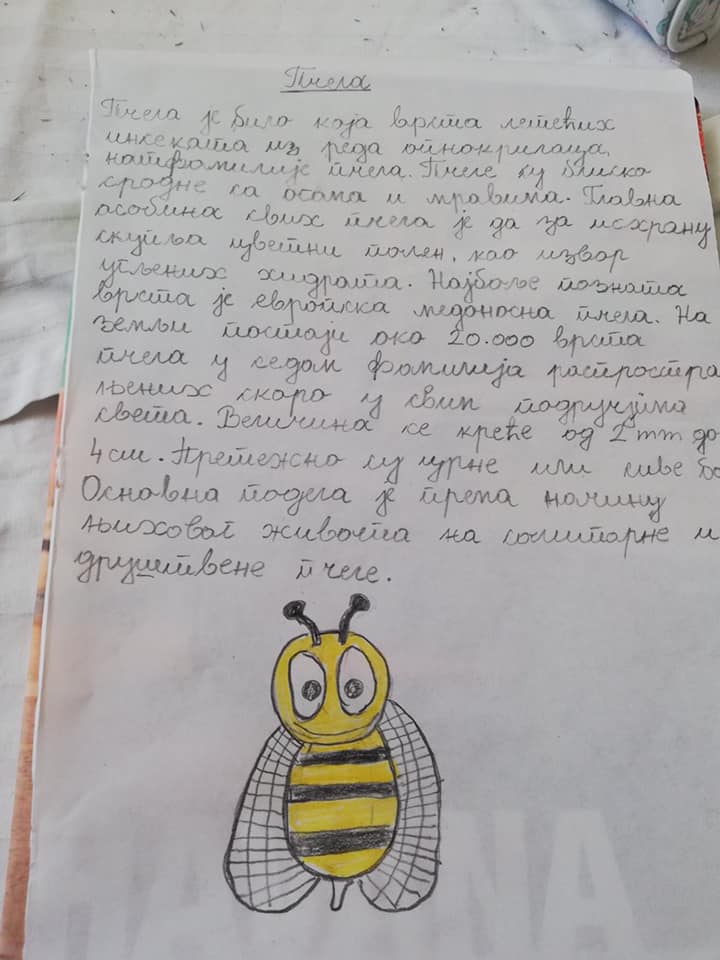 Пчела
Пчела је било која врста летећих
инсеката из реда опнокрилаца,
натфамилије пчела. Пчеле су блиско
сродне са осама и мравима. Главна
особина свих пчела је да за исхрану
скупља цветни полен, као извор
угљених хидрата. Најбоље позната
врста је европска медоносна пчела. На
земљи постоји око 20.000 врста
пчела у седам фамилија распростра
њених скоро у свим подручјима
света. Величина се креће од 2mm до
4cm. Претежно су црне или сиве бо
Основна подела је према начину
њиховог живота на солитарне и
друштвене пчеле.
NA